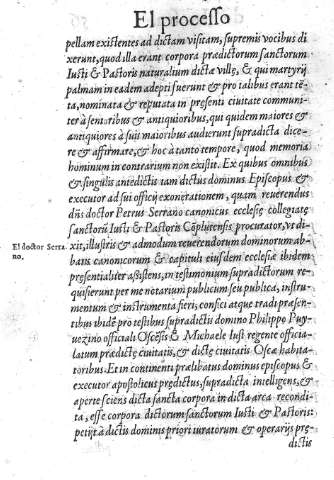 El processo
pellam existentes ad dictam visitam, supremis vocibus di
xerunt, quod illa erant corpora prædictorum sanctorum
Iusti & Pastoris naturalium dictæ villę, & qui martyrij
palmam in eadem adepti fuerunt & pro talibus erant tē-
ta, nominata & reputata in presenti ciuitate communi-
ter à senioribus & antiquioribus, qui quidem maiores &
antiquiores à suis maioribus audierunt supradicta dice-
re & affirmare, & hoc à tanto tempore, quod memoria
hominum in contrarium non existit. Ex quibus omnibus
& singulis antedictis iam dictus dominus Episcopus &
executor ad sui officij exonerationem, quam reuerendus
dñs doctor Petrus Serrano canonicus ecclesię collegiatę
sanctorũ Iusti & Pastoris Cõplutensis procurator, vt di-
El doctor Serra
no.
xit, illustris & admodum reuerendorum dominorum ab-
batis canonicorum & capituli eiusdem ecclesiæ ibidem
presentialiter assistens, in testimonium supradictorum re-
quisierunt per me notarium publicum seu publica, instru-
mentum & instrumenta fieri, confici atque tradi præsen-
tibus ibidē pro testibus supradictis domino Philippo Puy
uezino officiali Oscēsis & Michaele Iusti regente officia-
latum prædictę ciuitatis, & dictę ciuitatis Oscæ habita-
toribus. Et in continenti prælibatus dominus episcopus &
executor apostolicus predictus, supradicta intelligens, &
aperte sciens dicta sancta corpora in dicta arca recondi-
ta, esse corpora dictorum sanctorum Iusti & Pastoris:
petijt à dictis dominis priori iuratorum & operarijs prę-
dictis